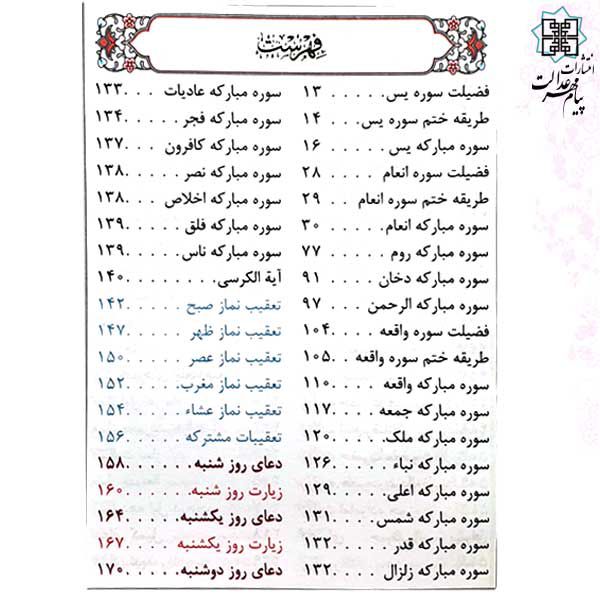 فهرست
انتشارات
پیام مهر عدالت
فضیلت سوره یس. . . . . . ۱۳
طریقه ختم سوره یس. . . ۱۴
سوره مبارکه یس . . . . . ۱۶
فضیلت سوره انعام . . . . ۲۸
طریقه ختم سوره انعام . . ۲۹
سوره مبارکه انعام. . . . . ۳۰
سوره مبارکه روم . . . . . ۷۷
سوره مبارکه دخان . . . . ۹۱
سوره مبارکه الرحمن . . . ۹۷
فضیلت سوره واقعه . . . . ۱۰۴
طریقه ختم سوره واقعه . . ۱۰۵
سوره مبارکه واقعه . . . . ۱۱۰
سوره مبارکه جمعه . . . . ۱۱۷
سوره مبارکه ملک. . . . . ۱۲۰
سوره مبارکه نباء . . . . . ۱۲۶
سوره مبارکه اعلی. . . . . ۱۲۹
سوره مبارکه شمس. . . . ۱۳۱
سوره مبارکه قدر . . . . . ۱۳۲
سوره مبارکه زلزال . . . . ۱۳۲
سوره مبارکه عادیات . . . ۱۳۳
سوره مبارکه فجر . . . . . ۱۳۴
سوره مبارکه کافرون . . . ۱۳۷
سوره مبارکه نصر . . . . . ۱۳۸
سوره مبارکه اخلاص . . . ۱۳۸
سوره مبارکه فلق . . . . . ۱۳۹
سوره مبارکه ناس. . . . . ۱۳۹
آیة الکرسی. . . . . . . . ۱۴۰
تعقیب نماز صبح . . . . . ۱۴۲
تعقیب نماز ظهر . . . . . ۱۴۷
تعقیب نماز عصر . . . . . ۱۵۰
تعقیب نماز مغرب. . . . . ۱۵۲
تعقیب نماز عشاء . . . . . ۱۵۴
تعقیبات مشترکه . . . . . ۱۵۶
دعای روز شنبه. . . . . . ۱۵۸
زیارت روز شنبه. . . . . . ۱۶۰
دعای روز یکشنبه. . . . . ۱۶۴
زیارت روز یکشنبه . . . . ۱۶۷
دعای روز دوشنبه. . . . . ۱۷۰